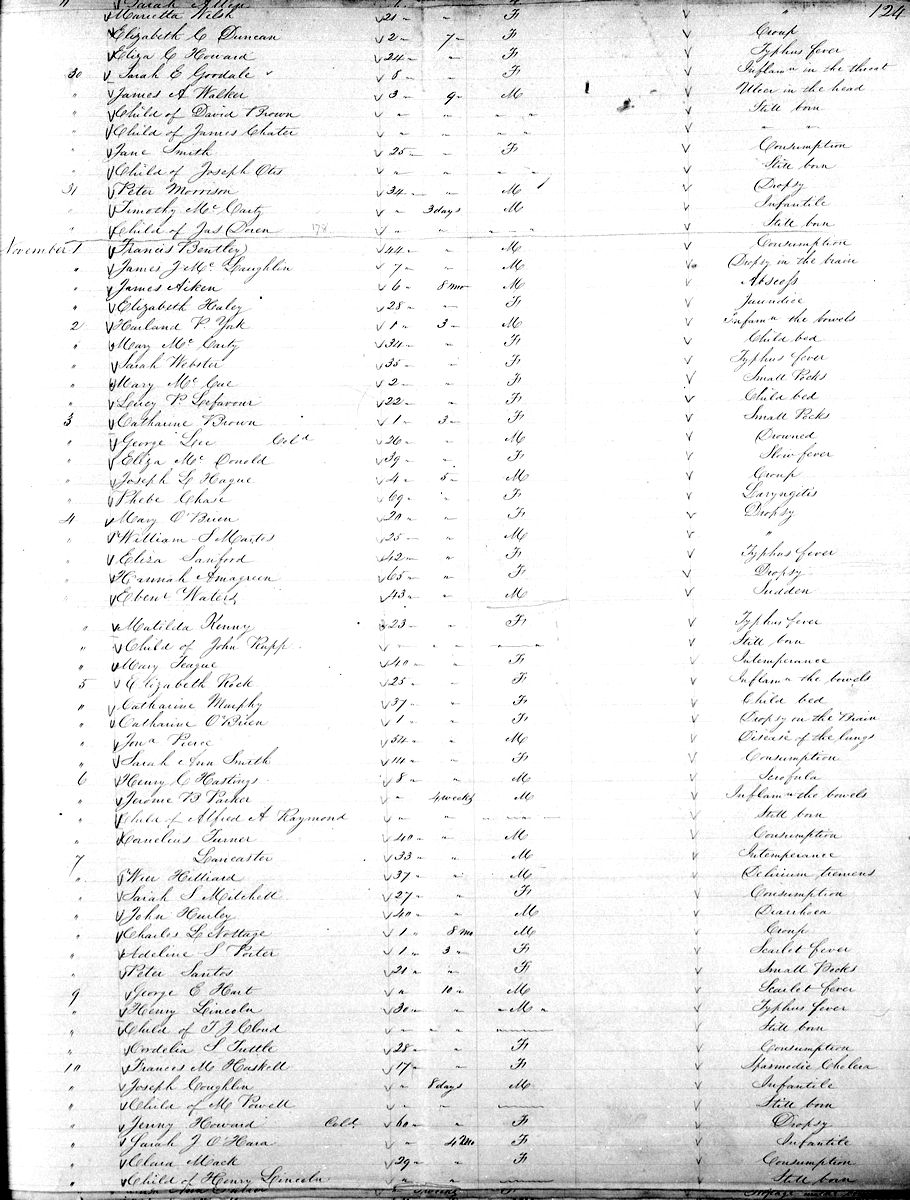 124
Marietta Welsh 21 " F "
Elizabeth C Duncan 2 7 F Croup
Eliza C Howard 24 " F Typhus fever
30 Sarah E Goodale 8 " F Inflamn in the throat
" James A Walker 3 9 M Ulcer in the head
" Child of David Brown " " " " Still born
" Child of James Chater " " " " " "
" Jane Smith 25 " F Consumption
" Child of Joseph Otis " " " " Still born
31 Peter Morrison 34 " M Dropsy
" Timothy Mc Carty " 3 days M Infantile
" Child of Jas Doren 178 " " " " Still born
November 1 Francis Bentley 44 " M Consumption
" James J Mc Laughlin 7 " M Dropsy in the brain
" James Aiken 6 8 mo M Abscess
" Elizabeth Haley 28 " F Jaundice
2 Harland P York 1 3 M Infamn the bowels
" Mary Mc Carty 34 " F Child bed
" Sarah Webster 35 " F Typhus fever
" Mary Mc Cue 2 " F Small Pocks
" Lucy P Lefavour 22 " F Child bed
3 Catharine Brown 1 3 F Small Pocks
" George Lee Cold 26 " M Drowned
" Eliza Mc Donold 39 " F Slow fever
" Joseph L Hague 4 5 M Croup
" Phebe Chase 69 " F Laryngitis
4 Mary O'Brien 20 " F Dropsy
" William S 25 " M "
" Eliza Sanford 42 " F Typhus fever
" Hannah Amagreen 65 " F Dropsy
" Ebenr Waters 43 " M Sudden
" Matilda Kenny 23 " F Typhus fever
" Child of John Rupp " " " " Still born
" Mary Teague 40 " F Intemperance
5 Elizabeth Rock 25 " F Inflamn the bowels
" Catharine Murphy 37 " F Child bed
" Catharine O'Brien 1 " F Dropsy on the Brain
" Jona Pierce 54 " M Disease of the lungs
" Sarah Ann Smith 14 " F Consumption
6 Henry C Hastings 8 " M Scrofula
" Jerome B Parker " 4 weeks M Inflamn the bowels
" Child of Alfred A Raymond " " " " Still born
" Cornelius Turner 40 " M Consumption
7 Lancaster 33 " M Intemperance
" Wm Hilliard 37 " M Delirium tremens
" Sarah S Mitchell 27 " F Consumption
" John Hurley 40 " M Diarrhoea
" Charles L Nottage 1 8 mo M Croup
" Adeline S Porter 1 3 F Scarlet fever
" Peter Santos 21 " F Small Pocks
9 George E Hart " 10 M Scarlet fever
" Henry Lincoln 30 " M Typhus fever
" Child of T J Cloud " " " Still born
" Cordelia S Tuttle 28 " F Consumption
10 Frances M Haskell 17 " F Spasmodic Cholera
" Joseph Coughlin " 8 days M Infantile
" Child of M Powell " " Still born
" Jenny Howard Cold 60 " F Dropsy
" Sarah J O'Hara " 4 Mo F Infantile
" Clara Mack 29 " F Consumption
" Child of Henry Lincoln " " Still born